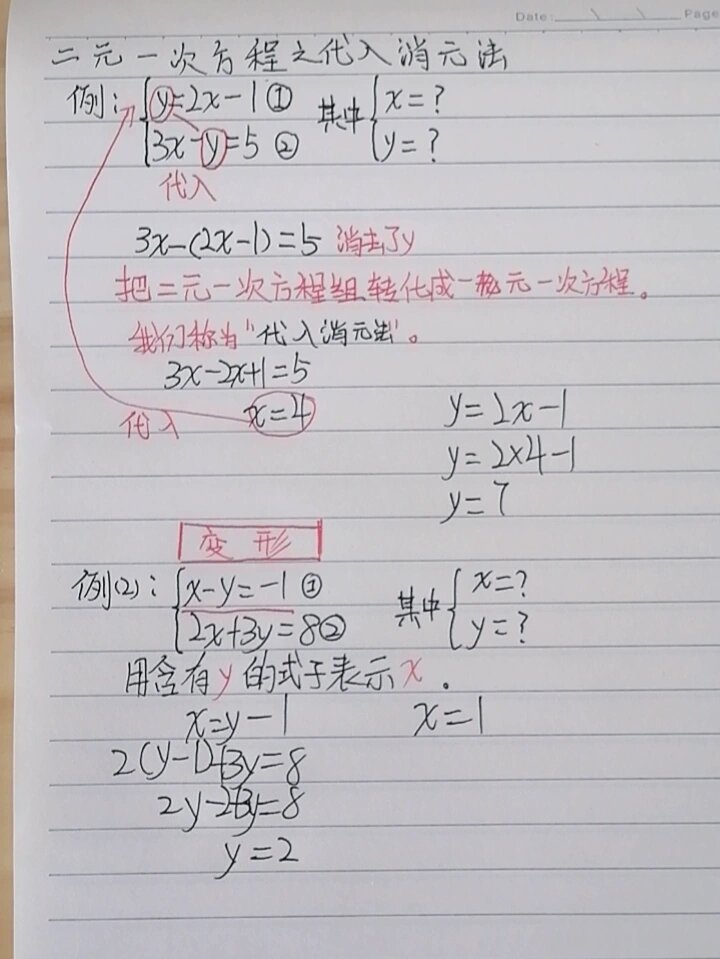 Date: Page
二元一次方程之代入消元法
例: { y=2x-1 ① 其中 { x=?
3x-y=5 ② y=?
代入
3x-(2x-1)=5 消去了y
把二元一次方程组转化成一元一次方程。
我们称为"代入消元法"。
3x-2x+1=5
代入 x=4 y=2x-1
y=2×4-1
y=7
变形
例(2): { x-y=-1 ① 其中 { x=?
2x+3y=8② y=?
用含有y的式子表示x.
x=y-1 x=1
2(y-1)+3y=8
2y-2+3y=8
y=2